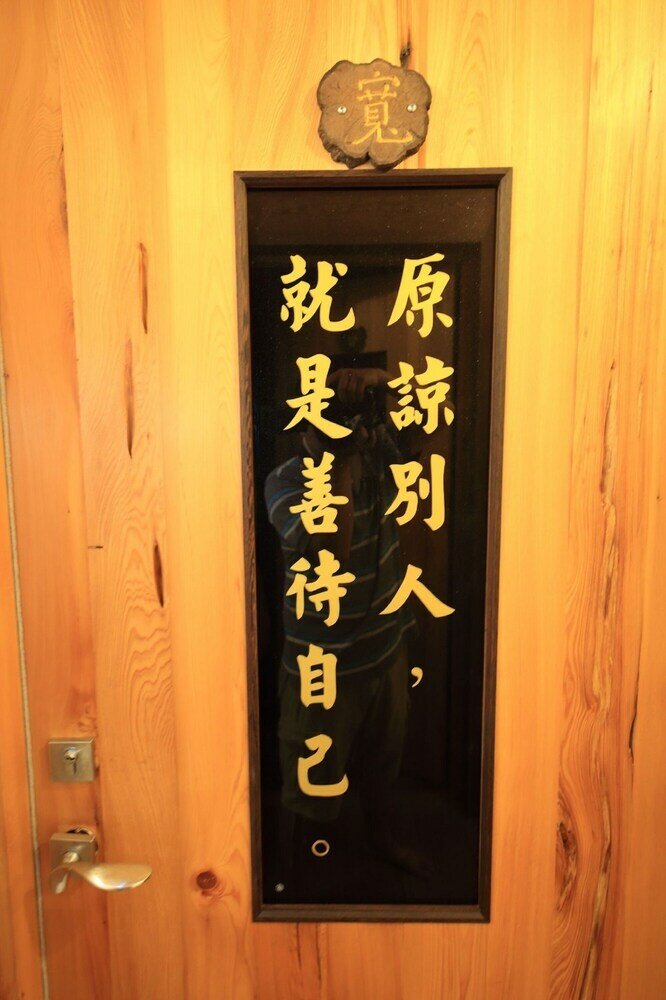 寬
原諒別人，
就是善待自己。